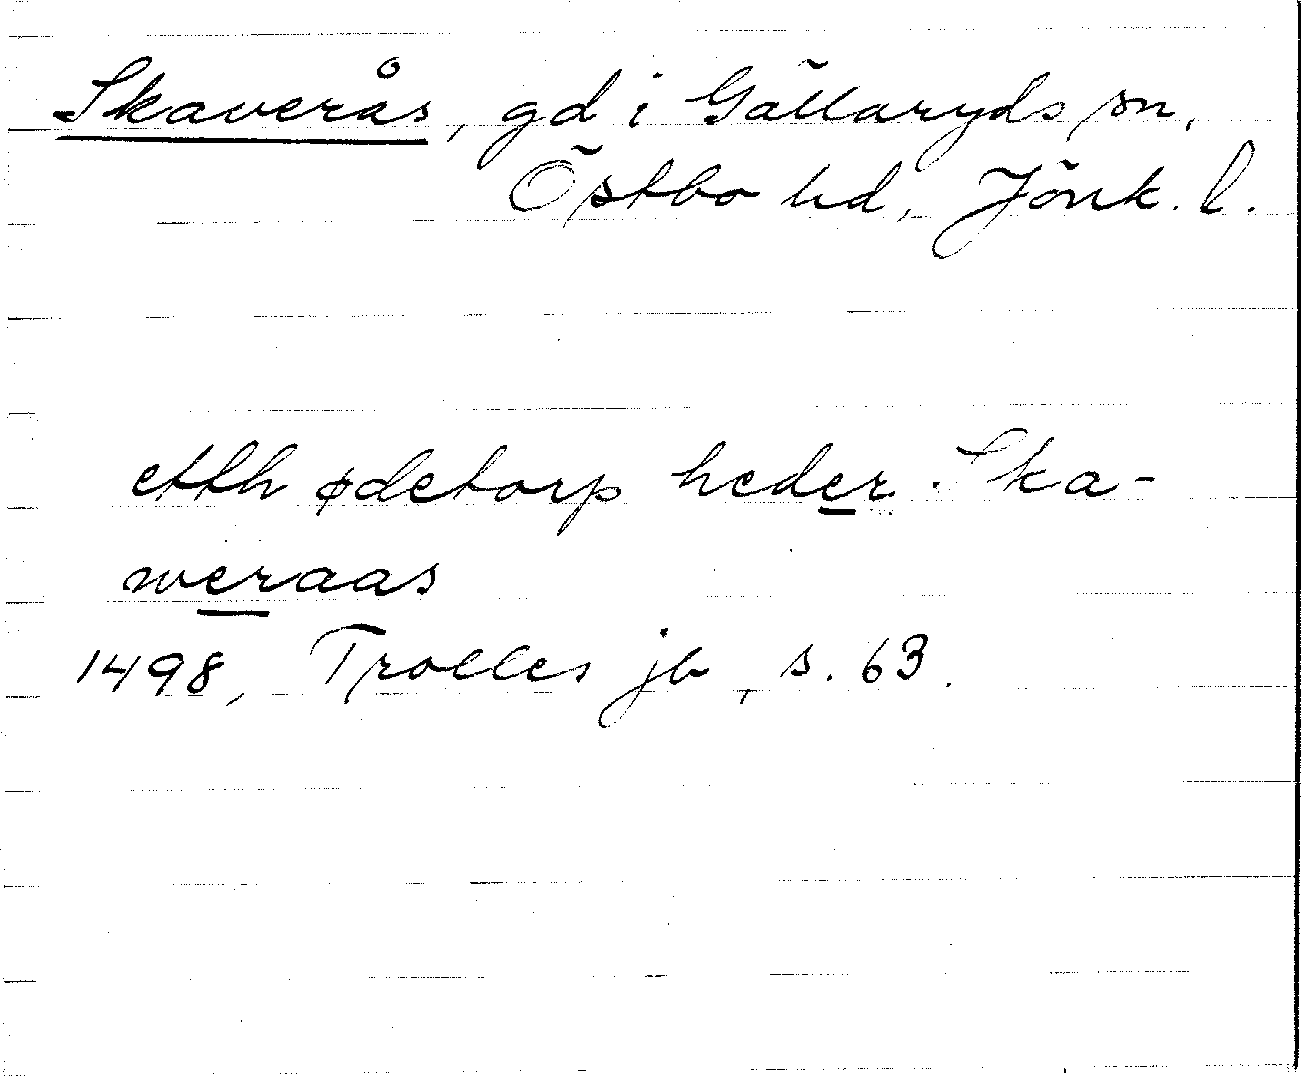 Skaverås, gd i Gällaryds sn,
Östbo hd, Jönk. l.
etth ødetorp heder Ska-
weraas
1498, Trolles jb, s. 63.